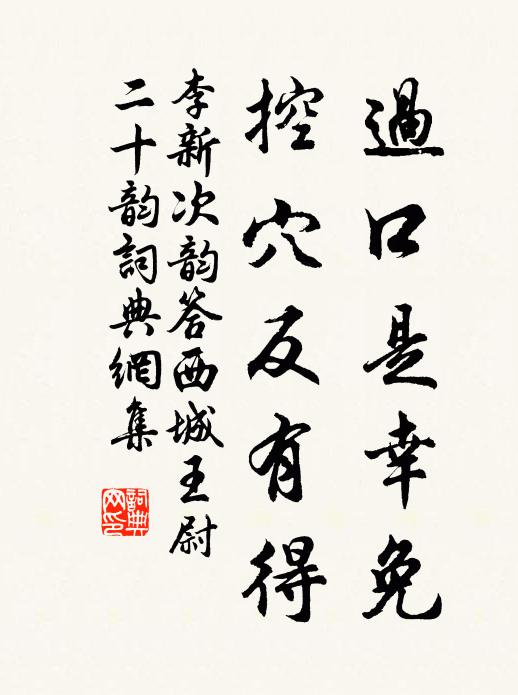 過口是幸免
控穴反有得
李新次韵答西城王尉
二十韵詞典網集
詞典網印